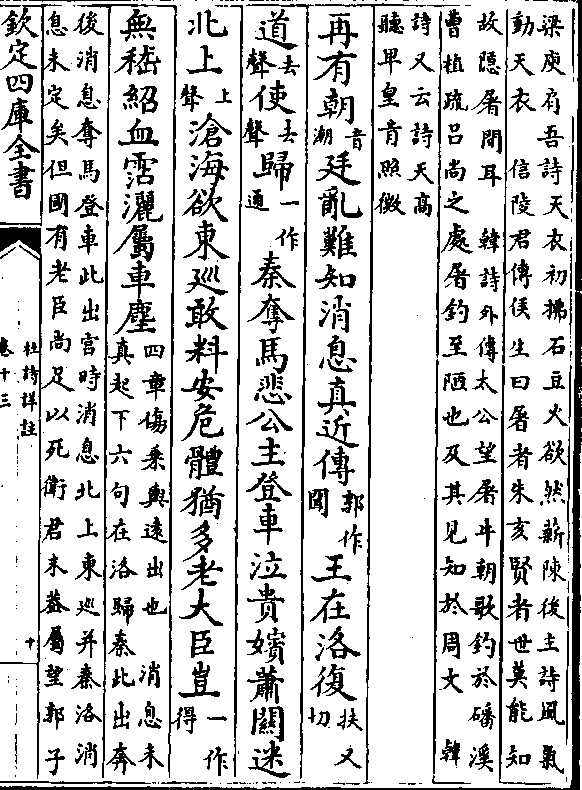 梁庾肩吾詩天衣初拂石豆火欲然薪陳後主詩風氣
動天衣　信陵君傳侯生曰屠者朱亥賢者世莫能知
故隱屠間耳　韓詩外傳太公望屠牛朝歌釣於磻溪
曹植疏呂尚之處屠釣至陋也及其見知於周文　韓
詩又云詩天高
聽卑皇肯照微
再有朝音潮廷亂難知消息真近傳郭作聞王在洛復扶又切
道去聲使去聲歸一作通秦奪馬悲公主登車泣貴嬪蕭關迷
北上上聲滄海欲東巡敢料安危體猶多老大臣豈一作得
無嵇紹血霑灑屬車塵四章傷乘輿遠出也　消息未
真起下六句在洛歸秦此出奔
後消息奪馬登車此出宮時消息北上東巡并秦洛消
息未定矣但國有老臣尚足以死衛君末蓋屬望郭子
欽定四庫全書
杜詩詳註
卷十三
十